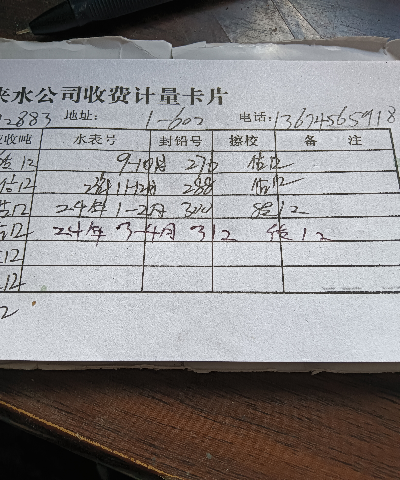 来水公司收费计量卡片
22883 地址: 1-602 电话: 13674565918
应收吨 水表号 封铅号 擦校 备 注
12 9-10月 276 估12
估12 11-12月 288 估12
12 24年 1-2月 300 12
12 24年 3-4月 312 12
12
12